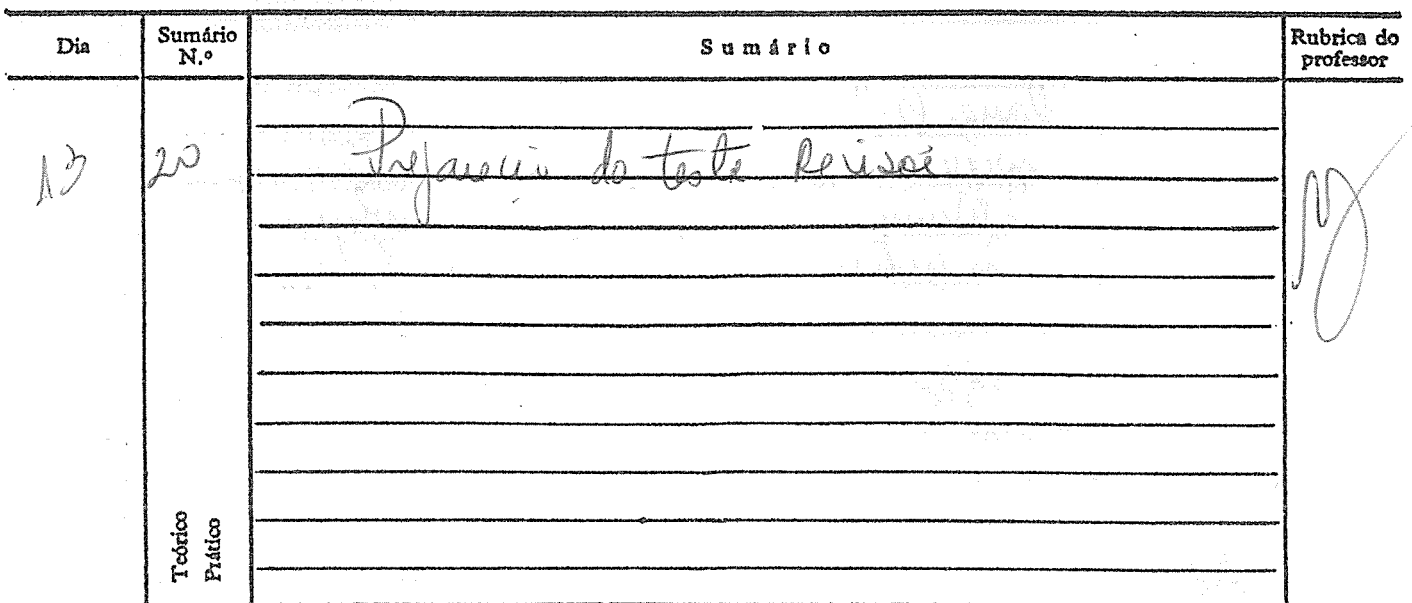 Dia Sumário N.º Sumário Rubrica do professor
13 20 Preparação do teste Revisões
Teórico
Prático